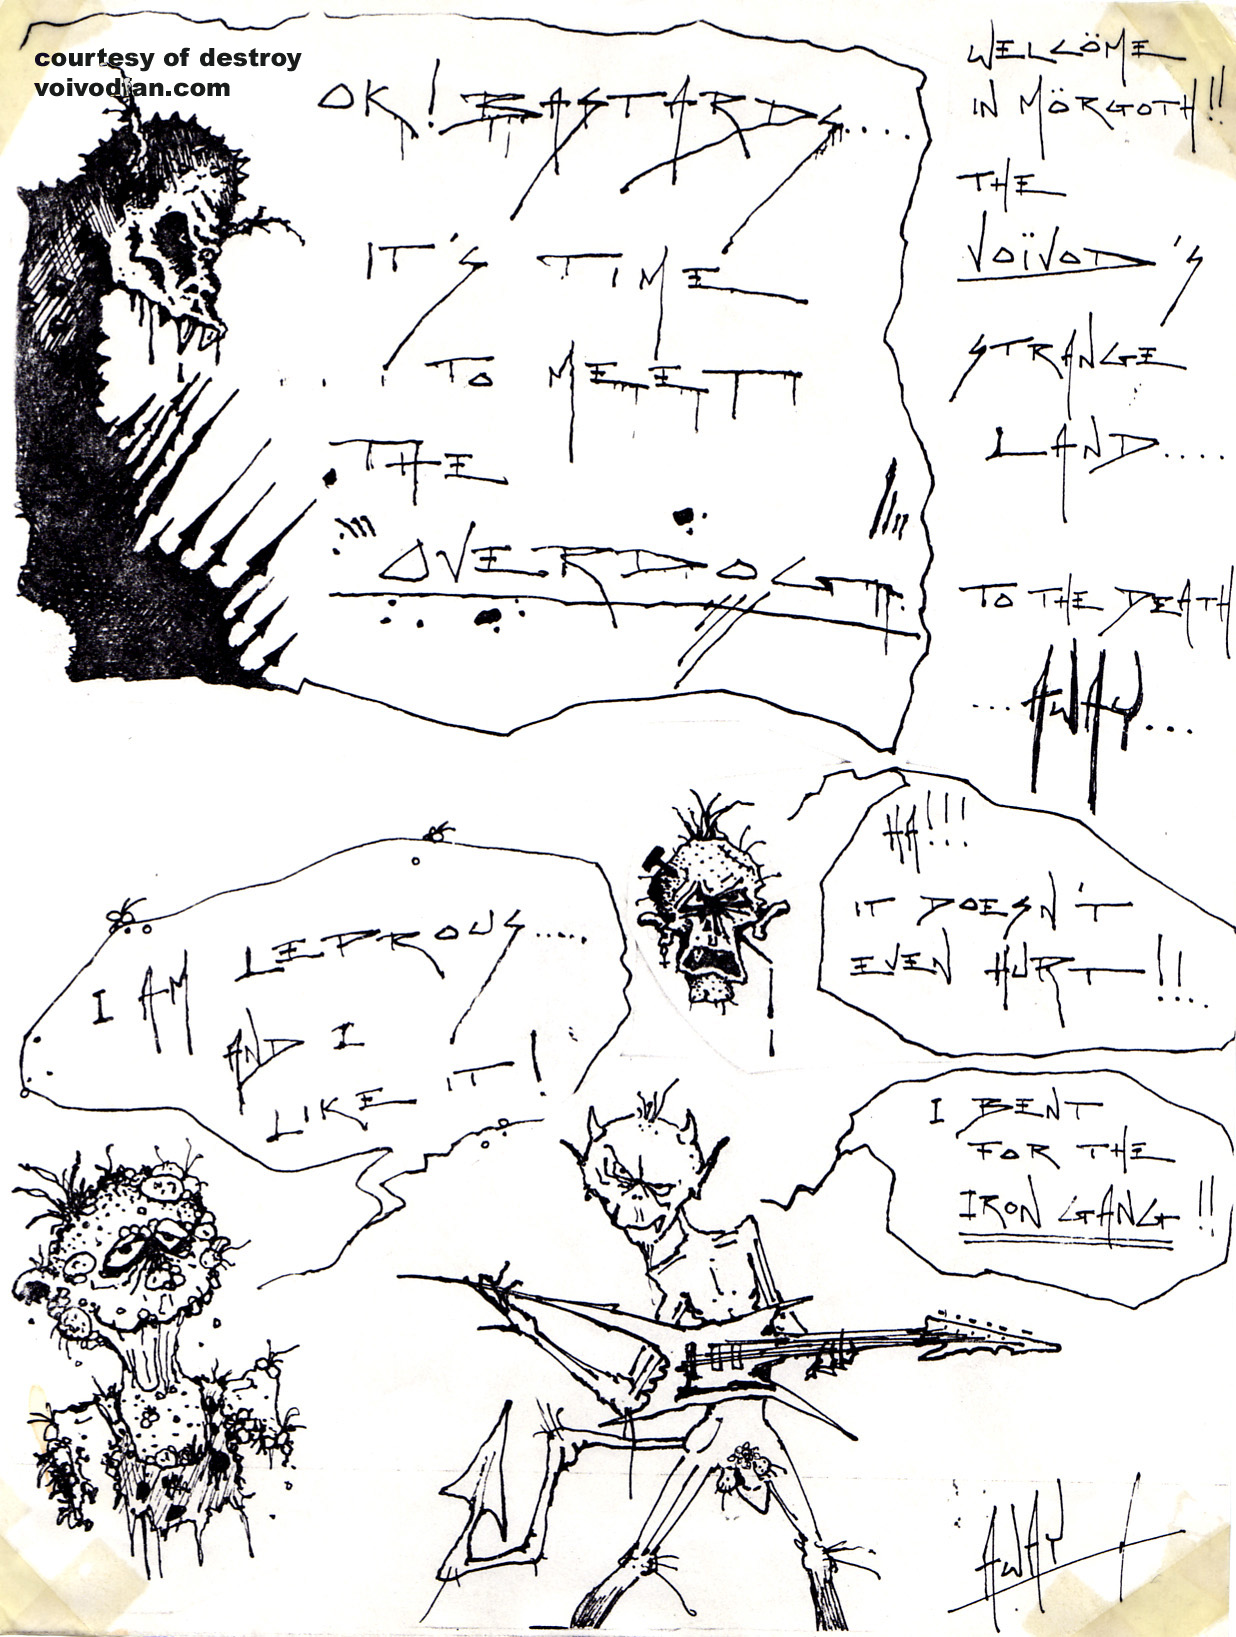 courtesy of destroy
voivodian.com
OK! BASTARDS....
IT'S TIME
.... TO MEETT
THE
OVERDOG
WELCÖME
IN MÖRGOTH!!
THE
VOÏVOD'S
STRANGE
LAND....
TO THE DEATH
...AWAY...
HA!!!
IT DOESN'T
EVEN HURT!!..
I AM LEPROUS....
AND I
LIKE IT!
I BENT
FOR THE
IRON GANG!!
AWAY